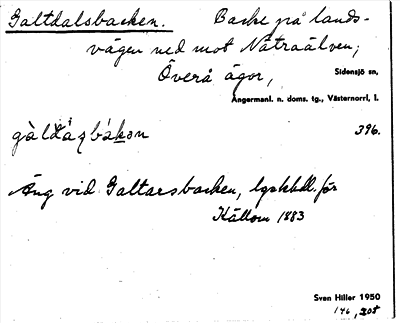 Galtdalsbacken. Backe på lands-
vägen ned mot Nätraälven;
Överå ägor, Sidensjö sn,
Ångermanl. n. doms. tg., Västernorrl. l.
396.
Äng vid Galtarsbacken, lgskhdl. för
Källom 1883
Sven Hiller 1950
146, 208